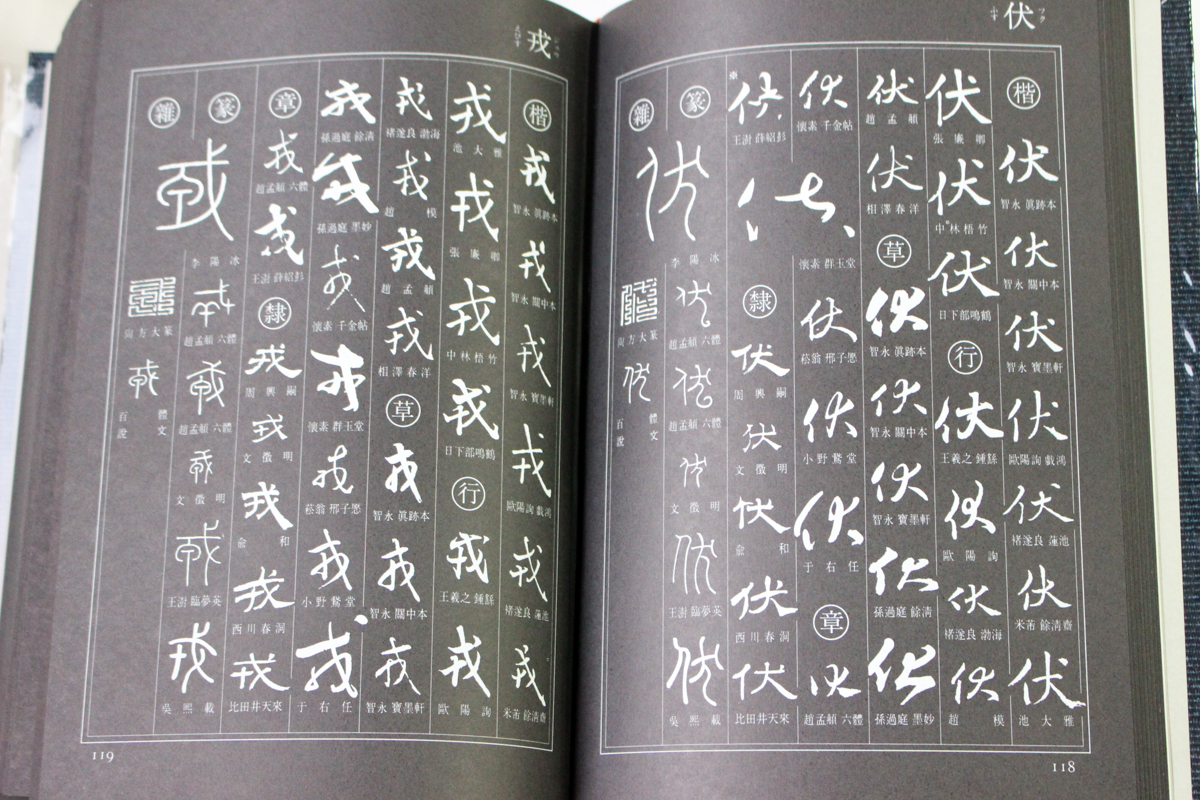 伏
フク
ふす
楷
伏
智永 眞跡本
伏
智永 關中本
伏
智永 寶墨軒
伏
歐陽詢 戲鴻
伏
褚遂良 蓮池
伏
米芾 餘清齋
伏
池大雅
伏
張廉卿
伏
中林梧竹
伏
日下部鳴鶴
行
伏
王羲之 鍾繇
伏
歐陽詢
伏
褚遂良 渤海
伏
趙模
伏
趙孟頫
伏
相澤春洋
草
伏
智永 眞跡本
伏
智永 關中本
伏
智永 寶墨軒
伏
孫過庭 餘清
伏
孫過庭 墨妙
伏
懷素 千金帖
伏
懷素 群玉堂
伏
菘翁 邢子愿
伏
小野鵞堂
伏
于右任
章
伏
趙孟頫 六體
伏
王澍 薛紹彭
隸
伏
周興嗣
伏
文徵明
伏
兪和
伏
西川春洞
伏
比田井天來
篆
伏
李陽冰
伏
趙孟頫 六體
伏
趙孟頫 六體
伏
文徵明
伏
王澍 臨夢英
伏
吳熙載
雜
伏
方大篆
伏
百體說文
118
戎
えびす
楷
戎
智永 眞跡本
戎
智永 關中本
戎
智永 寶墨軒
戎
歐陽詢 戲鴻
戎
褚遂良 蓮池
戎
米芾 餘清齋
戎
池大雅
戎
張廉卿
戎
中林梧竹
戎
日下部鳴鶴
行
戎
王羲之 鍾繇
戎
歐陽詢
戎
褚遂良 渤海
戎
趙模
戎
趙孟頫
戎
相澤春洋
草
戎
智永 眞跡本
戎
智永 關中本
戎
智永 寶墨軒
戎
孫過庭 餘清
戎
孫過庭 墨妙
戎
懷素 千金帖
戎
懷素 群玉堂
戎
菘翁 邢子愿
戎
小野鵞堂
戎
于右任
章
戎
趙孟頫 六體
戎
王澍 薛紹彭
隸
戎
周興嗣
戎
文徵明
戎
兪和
戎
西川春洞
戎
比田井天來
篆
戎
李陽冰
戎
趙孟頫 六體
戎
趙孟頫 六體
戎
文徵明
戎
王澍 臨夢英
戎
吳熙載
雜
戎
方大篆
戎
百體說文
119